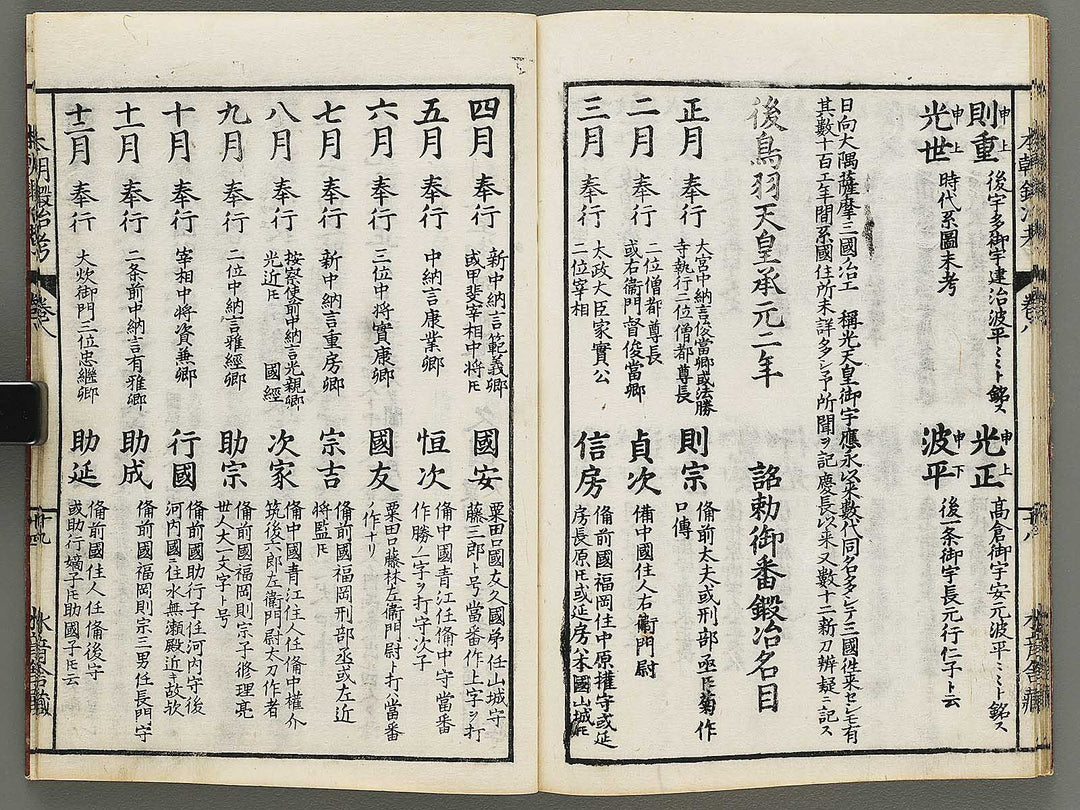 則重 申上 後宇多御宇建治波平ミミト銘ス
光正 申上 高倉御宇安元波平ミミト銘ス
光世 申上 時代系圖未考
波平 申下 後一条御宇長元行仁子ト云
日向大隅薩摩三國冶工 稱光天皇御宇應永以来數代同名多シテ三國徃来セシモ有
其數十百工年間系國住所未詳多シ予所聞ヲ記慶長以来又數十工新刀辨疑ニ記ス
後鳥羽天皇承元二年 詔勅御番鍛冶名目
正月 奉行 大宮中納言俊當卿或法勝
寺執行二位僧都尊長
則宗 俻前大夫或刑部丞𪜈菊作
口傳
二月 奉行 二位僧都尊長
或右衞門督俊當卿
貞次 備中國住人右衞門尉
三月 奉行 太政大臣家實公
二位宰相
信房 俻前國福岡住中原權守或延
房長原𪜈或延房八本國山城𪜈
四月 奉行 新中納言範義卿
或甲斐宰相中将𪜈
國安 粟田口國友久國弟任山城守
藤三郎ト号當番作上字ヲ打
五月 奉行 中納言康業卿
恒次 俻中國青江任俻中守當番
作勝ノ一字ヲ打守次子
六月 奉行 三位中将實康卿
國友 粟田口藤林左衞門尉ト打八當番
ノ作ナリ
七月 奉行 新中納言重房卿
宗吉 俻前國福岡刑部丞或左近
将監𪜈
八月 奉行 按察使前中納言光親卿
光近𪜈 國經
次家 俻中國青江住人任俻中權介
筑後六郎左衞門尉大刀作者
九月 奉行 二位中納言雅經卿
助宗 俻前國福岡則宗子修理亮
世人大一文字ト号
十月 奉行 宰相中将資兼卿
行國 俻前國助行子任河内守後
河内國ニ住水無瀬殿近キ故欤
十一月 奉行 二条前中納言有雅卿
助成 俻前國福岡則宗二男任長門守
十二月 奉行 大炊御門三位忠継卿
助延 俻前國住人任俻後守
或助行嫡子𪜈助國子𪜈云
本朝鍛冶考 巻八 十九 水音舎藏